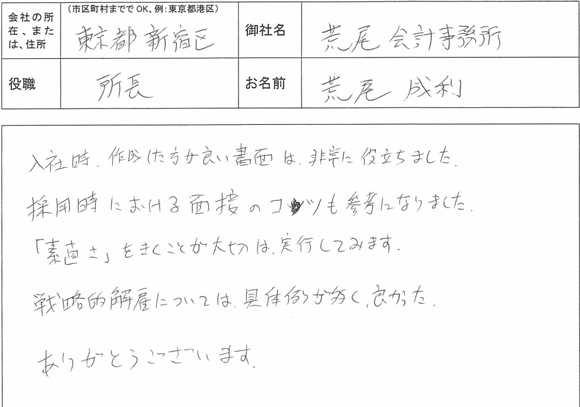 会社の所在、または、住所
(市区町村まででOK、例:東京都港区)
東京都新宿区
御社名
荒尾会計事務所
役職
所長
お名前
荒尾 成利
入社時、作成した方が良い書面は、非常に役立ちました。
採用時における面接のコツも参考になりました。
「素直さ」をきくことが大切は、実行してみます。
戦略的解雇については、具体例が多く、良かった。
ありがとうございます。